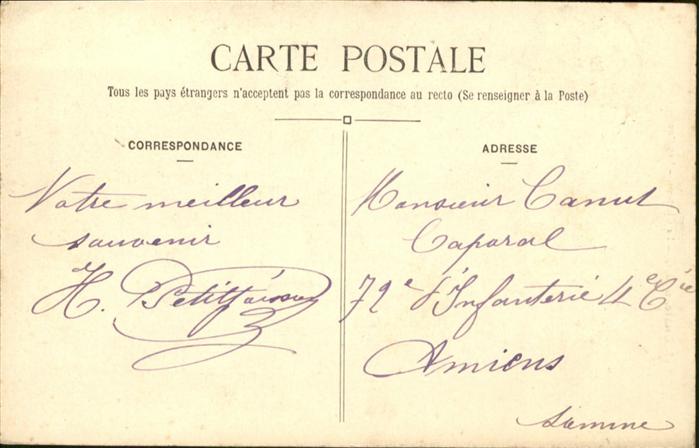 CARTE POSTALE
Tous les pays étrangers n'acceptent pas la correspondance au recto (Se renseigner à la Poste)
CORRESPONDANCE
Notre meilleur
souvenir
H.
ADRESSE
Monsieur Canut
Caporal
72e d'Infanterie 4e Cie
Amiens
Somme